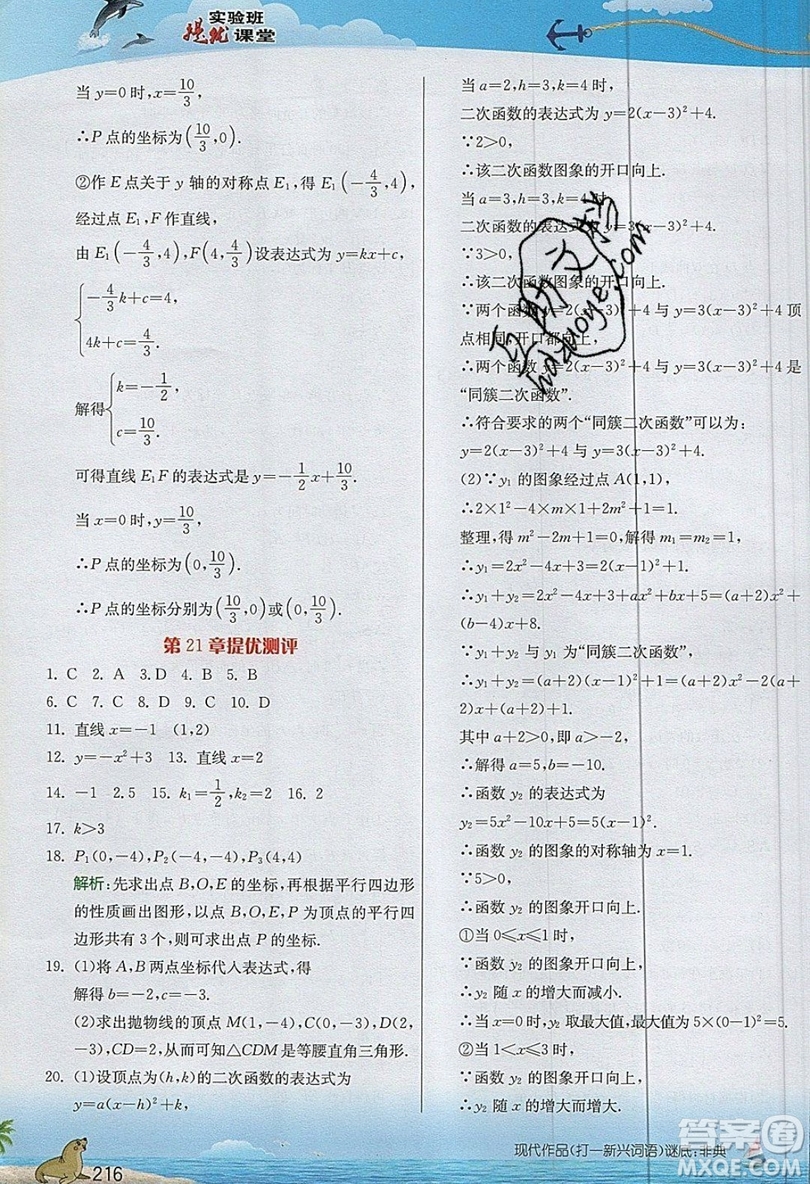 实验班
提优课堂
当 y=0 时,x=10/3,
∴P 点的坐标为(10/3,0).
②作 E 点关于 y 轴的对称点 E₁,得 E₁(-4/3,4),
经过点 E₁,F 作直线,
由 E₁(-4/3,4),F(4,4/3)设表达式为 y=kx+c,
{-4/3k+c=4,
4k+c=4/3,
解得{k=-1/2,
c=10/3.
可得直线 E₁F 的表达式是 y=-1/2x+10/3.
当 x=0 时,y=10/3,
∴P 点的坐标为(0,10/3).
∴P 点的坐标分别为(10/3,0)或(0,10/3).
第 21 章提优测评
1. C 2. A 3. D 4. B 5. B
6. C 7. D 8. D 9. C 10. D
11. 直线 x=-1 (1,2)
12. y=-x²+3 13. 直线 x=2
14. -1 2.5 15. k₁=1/2,k₂=2 16. 2
17. k>3
18. P₁(0,-4),P₂(-4,-4),P₃(4,4)
解析:先求出点 B,O,E 的坐标,再根据平行四边形
的性质画出图形,以点 P,B,O,E 为顶点的平行四
边形共有 3 个,则可求出点 P 的坐标.
19. (1)将 A,B 两点坐标代入表达式,得
解得 b=-2,c=-3.
(2)求出抛物线的顶点 M(1,-4),C(0,-3),D(2,
-3),CD=2,从而可知△CDM 是等腰直角三角形.
20. (1)设顶点为(h,k)的二次函数的表达式为
y=a(x-h)²+k,
当 a=2,h=3,k=4 时,
二次函数的表达式为 y=2(x-3)²+4.
∵2>0,
∴该二次函数图象的开口向上.
当 a=3,h=3,k=4 时,
二次函数的表达式为 y=3(x-3)²+4.
∵3>0,
∴该二次函数图象的开口向上.
∵两个函数 y=2(x-3)²+4 与 y=3(x-3)²+4 顶
点相同,开口都向上,
∴两个函数 y=2(x-3)²+4 与 y=3(x-3)²+4 是
“同簇二次函数”.
∴符合要求的两个“同簇二次函数”可以为:
y=2(x-3)²+4 与 y=3(x-3)²+4.
(2)∵y₁ 的图象经过点 A(1,1),
∴2×1²-4×m×1+2m²+1=1.
整理,得 m²-2m+1=0,解得 m₁=m₂=1.
∴y₁=2x²-4x+3=2(x-1)²+1.
∴y₁+y₂=2x²-4x+3+ax²+bx+5=(a+2)x²+
(b-4)x+8.
∵y₁+y₂ 与 y₁ 为“同簇二次函数”,
∴y₁+y₂=(a+2)(x-1)²+1=(a+2)x²-2(a+
2)x+(a+2)+1.
其中 a+2>0,即 a>-2,
∴解得 a=5,b=-10.
∴函数 y₂ 的表达式为
y₂=5x²-10x+5=5(x-1)².
∴函数 y₂ 的图象的对称轴为 x=1.
∵5>0,
∴函数 y₂ 的图象开口向上.
①当 0≤x≤1 时,
∵函数 y₂ 的图象开口向上,
∴y₂ 随 x 的增大而减小.
∴当 x=0 时,y₂ 取最大值,最大值为 5×(0-1)²=5.
②当 1<x≤3 时,
∵函数 y₂ 的图象开口向上,
∴y₂ 随 x 的增大而增大.
互助文档
huzuoye.com
现代作品(打一新兴词语)谜底:非典
216
答案圈
MXQE.COM